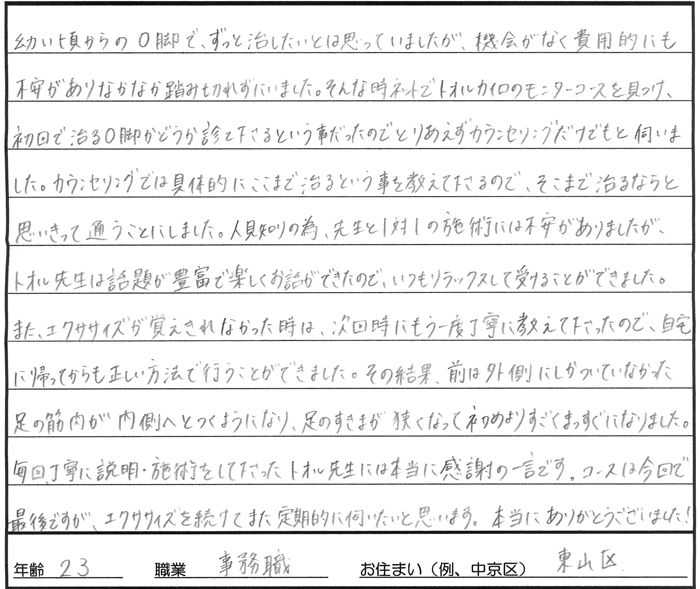 幼い頃からのO脚で、ずっと治したいとは思っていましたが、機会がなく費用的にも
不安がありなかなか踏み切れずにいました。そんな時ネットでトオルカイロのモニターコースを見つけ、
初回で治るO脚かどうか診て下さるという事だったのでとりあえずカウンセリングだけでもと伺いま
した。カウンセリングでは具体的にここまで治るという事を教えて下さるので、そこまで治るならと
思いきって通うことにしました。人見知りの為、先生と1対1の施術には不安がありましたが、
トオル先生は話題が豊富で楽しくお話ができたので、いつもリラックスして受けることができました。
また、エクササイズが覚えきれなかった時は、次回時にもう一度丁寧に教えて下さったので、自宅
に帰ってからも正しい方法で行うことができました。その結果、前は外側にしかついていなかった
足の筋肉が内側へとつくようになり、足のすきまが狭くなって初めよりすごくまっすぐになりました。
毎回丁寧に説明・施術をして下さったトオル先生には本当に感謝の一言です。コースは今回で
最後ですが、エクササイズを続けてまた定期的に伺いたいと思います。本当にありがとうございました!
年齢 23 職業 事務職 お住まい(例、中京区) 東山区